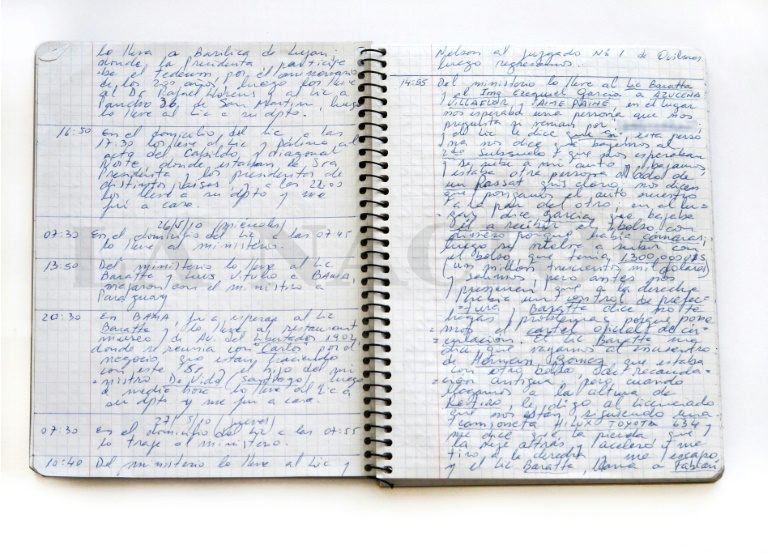 lo lleva a Basilica de Lujan
donde la Presidenta, participe
de el tedeum por el aniversario
de los 200 años, luego los lleve
al Dr Rafael Llorens y al Lic a
36, de San Martin, luego
lo lleve al Lic a su dpto.
16:50 En el domicilio del Lic a las
17:30 los lleve al Lic y Paulina al
acto del Cabildo, y diagonal
Norte, donde estaban la Sra
Presidenta y los presidentes de
distintos paises, a las 22:00
los lleve a su dpto y me
fui a casa.
26/5/10 (miercoles)
07:30 En el domicilio del Lic a las 07:45
lo lleve al ministerio.
13:50 Del ministerio lo lleve al Lic
Baratta y Luis Vitullo a BAHIA,
viajaron con el ministro a
Paraguay
20:30 En BAHIA, fui a esperar al Lic
Baratta y lo lleve al restaurant
marcelo de Av del Libertador
donde se reunia con "Carlos" por el
negocio que estan haciendo
con este Sr. el hijo del mi
nistro De Vido (Santiago), luego
a media hora lo lleve al Lic a
su dpto y me fui a casa.
27/5/10 (jueves)
07:30 En el domicilio del Lic a las 07:55
lo traje al ministerio.
10:40 Del ministerio lo lleve al Lic y
Nelson al juzgado Nº 1 de Quilmes
luego regresamos.
14:55 Del ministerio lo lleve al Lic Baratta
y el Ing Ezequiel Garcia a AZUCENA
VILLAFLOR y AIME PAINE, en el lugar
nos esperaba una persona que nos
pregunta si venian por
el Lic le dice que si, esta perso
na nos dice que bajemos al
2do subsuelo y que nos esperaban
y se sube a mi auto, bajamos
estaba otra persona al lado de
un Passat gris claro, nos dicen
que pongamos el auto nuestro
a la par del otro, en el lu
gar dice Garcia que bajaba
a recibir el bolso con
dinero porque habia camaras,
luego se retira y sube con
el bolso, que tenia, 1.300.000 U$S
(un millon trescientos mil dolares)
y salimos pero antes nos
que a la derecha
habia un control de prefec
tura Baratta dice no te
hagas problemas, porque pone
mos el cartel oficial de cir
culacion el Lic Baratta me
dice que vayamos al encuentro
de Hernan Gomez que estaba
con otro bolso de recauda
cion antigua, pero cuando
llegamos a la altura de
Retiro le digo al licenciado
que nos esta siguiendo una
camioneta Hilux Toyota 634
me dice que la pierda que
la deje atras, acelero me
tiro a la derecha y me escapo
y el Lic Baratta, llama a Fabian
LA NACION